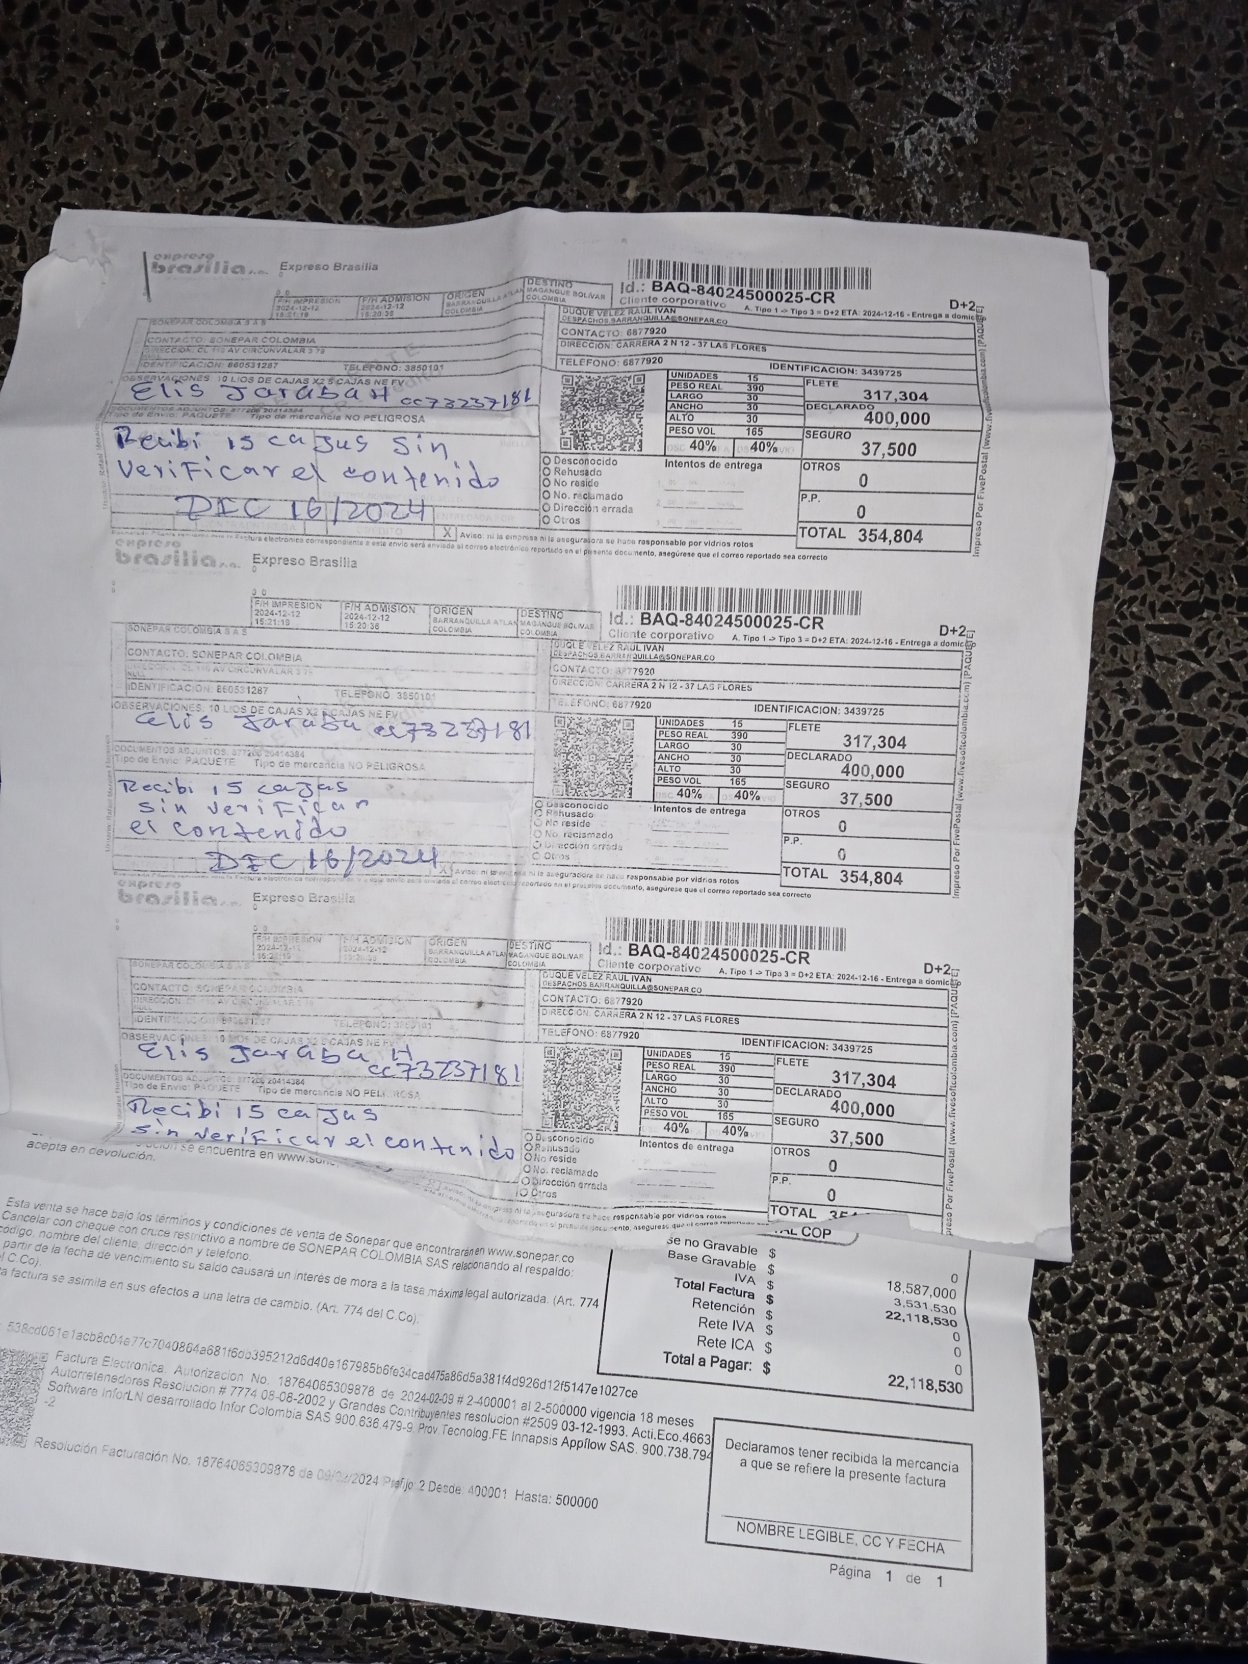 expreso
brasilia s.a.
Expreso Brasilia
0
0 0
F/H IMPRESION
2024-12-12
15:21:19
F/H ADMISION
2024-12-12
15:20:36
ORIGEN
BARRANQUILLA ATLAN
COLOMBIA
DESTINO
MAGANGUE BOLIVAR
COLOMBIA
Id.: BAQ-84024500025-CR
Cliente corporativo
A. Tipo 1 -> Tipo 3 = D+2 ETA: 2024-12-16 - Entrega a domic
D+2
SONEPAR COLOMBIA S A S
CONTACTO: SONEPAR COLOMBIA
DIRECCION: CL 110 AV CIRCUNVALAR 3 79
IDENTIFICACION: 860531287
TELEFONO: 3850101
DUQUE VELEZ RAUL IVAN
DESPACHOS.BARRANQUILLA@SONEPAR.CO
CONTACTO: 6877920
DIRECCIÓN: CARRERA 2 N 12 - 37 LAS FLORES
TELEFONO: 6877920
IDENTIFICACION: 3439725
OBSERVACIONES: 10 LIOS DE CAJAS X2 5 CAJAS NE FV
Elis Jaraba H cc73237181
DOCUMENTOS ADJUNTOS: 377206 20414384
Tipo de Envío: PAQUETE Tipo de mercancia NO PELIGROSA
Recibi 15 cajas sin
verificar el contenido
DEC 16/2024
UNIDADES 15
PESO REAL 390
LARGO 30
ANCHO 30
ALTO 30
PESO VOL 165
40% 40%
FLETE
317,304
DECLARADO
400,000
SEGURO
37,500
OTROS
0
P.P.
0
TOTAL 354,804
Desconocido
Rehusado
No reside
No. reclamado
Dirección errada
Otros
Intentos de entrega
X
Aviso: ni la empresa ni la aseguradora se hace responsable por vidrios rotos
Factura electrónica correspondiente a este envío será enviada al correo electrónico reportado en el presente documento, asegúrese que el correo reportado sea correcto
Impreso Por FivePostal (www.fivesoftcolombia.com) [PAQUETE]
expreso
brasilia s.a.
Expreso Brasilia
0
0 0
F/H IMPRESION
2024-12-12
15:21:19
F/H ADMISION
2024-12-12
15:20:36
ORIGEN
BARRANQUILLA ATLAN
COLOMBIA
DESTINO
MAGANGUE BOLIVAR
COLOMBIA
Id.: BAQ-84024500025-CR
Cliente corporativo
A. Tipo 1 -> Tipo 3 = D+2 ETA: 2024-12-16 - Entrega a domic
D+2
SONEPAR COLOMBIA S A S
CONTACTO: SONEPAR COLOMBIA
NULL
IDENTIFICACION: 860531287
TELEFONO: 3850101
DUQUE VELEZ RAUL IVAN
DESPACHOS.BARRANQUILLA@SONEPAR.CO
CONTACTO: 6877920
DIRECCIÓN: CARRERA 2 N 12 - 37 LAS FLORES
TELEFONO: 6877920
IDENTIFICACION: 3439725
OBSERVACIONES: 10 LIOS DE CAJAS X2 5 CAJAS NE FV
Elis Jaraba cc73237181
DOCUMENTOS ADJUNTOS: 377206 20414384
Tipo de Envío: PAQUETE Tipo de mercancia NO PELIGROSA
Recibi 15 cajas
sin verificar
el contenido
DEC 16/2024
UNIDADES 15
PESO REAL 390
LARGO 30
ANCHO 30
ALTO 30
PESO VOL 165
40% 40%
FLETE
317,304
DECLARADO
400,000
SEGURO
37,500
OTROS
0
P.P.
0
TOTAL 354,804
Desconocido
Rehusado
No reside
No. reclamado
Dirección errada
Otros
Intentos de entrega
Impreso Por FivePostal (www.fivesoftcolombia.com) [PAQUETE]
expreso
brasilia s.a.
Expreso Brasilia
0
0 0
F/H IMPRESION
F/H ADMISION
2024-12-12
ORIGEN
BARRANQUILLA ATLAN
COLOMBIA
DESTINO
MAGANGUE BOLIVAR
COLOMBIA
Id.: BAQ-84024500025-CR
Cliente corporativo
A. Tipo 1 -> Tipo 3 = D+2 ETA: 2024-12-16 - Entrega a domic
D+2
SONEPAR COLOMBIA S A S
CONTACTO: SONEPAR COLOMBIA
IDENTIFICACION: 860531287
TELEFONO: 3850101
DUQUE VELEZ RAUL IVAN
DESPACHOS.BARRANQUILLA@SONEPAR.CO
CONTACTO: 6877920
DIRECCIÓN: CARRERA 2 N 12 - 37 LAS FLORES
TELEFONO: 6877920
IDENTIFICACION: 3439725
OBSERVACIONES: 10 LIOS DE CAJAS X2 5 CAJAS NE FV
Elis Jaraba H
cc73237181
DOCUMENTOS ADJUNTOS: 377206 20414384
Tipo de Envío: PAQUETE Tipo de mercancia NO PELIGROSA
Recibi 15 cajas
sin verificar el contenido
UNIDADES 15
PESO REAL 390
LARGO 30
ANCHO 30
ALTO 30
PESO VOL 165
40% 40%
FLETE
317,304
DECLARADO
400,000
SEGURO
37,500
OTROS
0
P.P.
0
TOTAL
Desconocido
Rehusado
No reside
No. reclamado
Dirección errada
Otros
Intentos de entrega
Impreso Por FivePostal (www.fivesoftcolombia.com) [PAQUETE]
se encuentra en www.son
acepta en devolución.
Esta venta se hace bajo los términos y condiciones de venta de Sonepar que encontraran en www.sonepar.co
Cancelar con cheque con cruce restrictivo a nombre de SONEPAR COLOMBIA SAS relacionando al respaldo:
código, nombre del cliente, dirección y telefono.
partir de la fecha de vencimiento su saldo causará un interés de mora a la tasa máxima legal autorizada. (Art. 774
l C.Co).
a factura se asimila en sus efectos a una letra de cambio. (Art. 774 del C.Co).
AL COP
se no Gravable $ 0
Base Gravable $ 18,587,000
IVA $ 3,531,530
Total Factura $ 22,118,530
Retención $ 0
Rete IVA $ 0
Rete ICA $ 0
Total a Pagar: $ 22,118,530
538cd061e1acb8c04a77c7040864a681f6db395212d6d40e167985b6fe34cad475a86d5a381f4d926d12f5147e1027ce
Factura Electronica. Autorizacion No. 18764065309878 de 2024-02-09 # 2-400001 al 2-500000 vigencia 18 meses
Autorretenedores Resolucion # 7774 08-08-2002 y Grandes Contribuyentes resolucion #2509 03-12-1993. Acti.Eco.4663
Software InforLN desarrollado Infor Colombia SAS 900.636.479-9. Prov Tecnolog.FE Innapsis Appflow SAS. 900.738.794
-2
Resolución Facturación No. 18764065309878 de 09/02/2024 Prefijo 2 Desde: 400001 Hasta: 500000
Declaramos tener recibida la mercancía
a que se refiere la presente factura
NOMBRE LEGIBLE, CC Y FECHA
Página 1 de 1